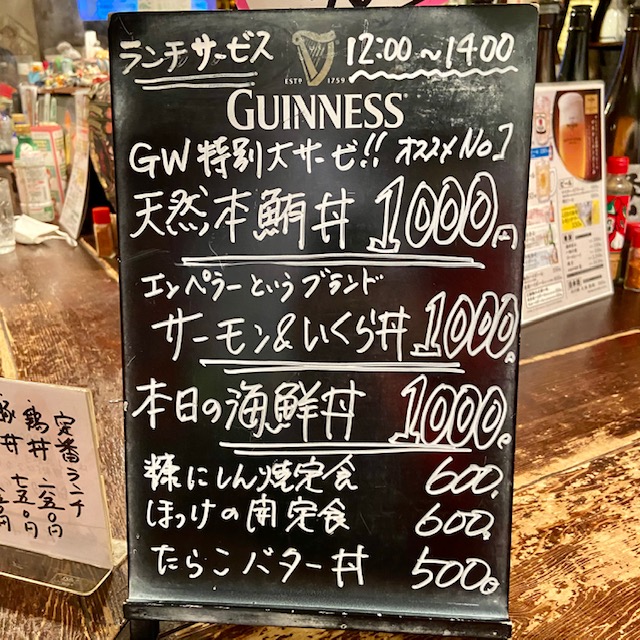 ランチサービス 12:00〜14:00
ESTD 1759
GUINNESS
GW特別大サービ!! オススメNo1
天然本鮪丼 1000円
エンペラーというブランド
サーモン&いくら丼 1000
本日の海鮮丼 1000
糠にしん焼定食 600
ほっけの開定食 600
たらこバター丼 500
定番ランチ
鶏丼